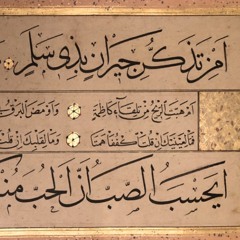 أمن تذكر جيران بذي سلم
أم هبت الريح من تلقاء كاظمة وأومض البرق
فما لعينيك إن قلت اكففا همتا وما لقلبك إن قلت
أيحسب الصب أن الحب